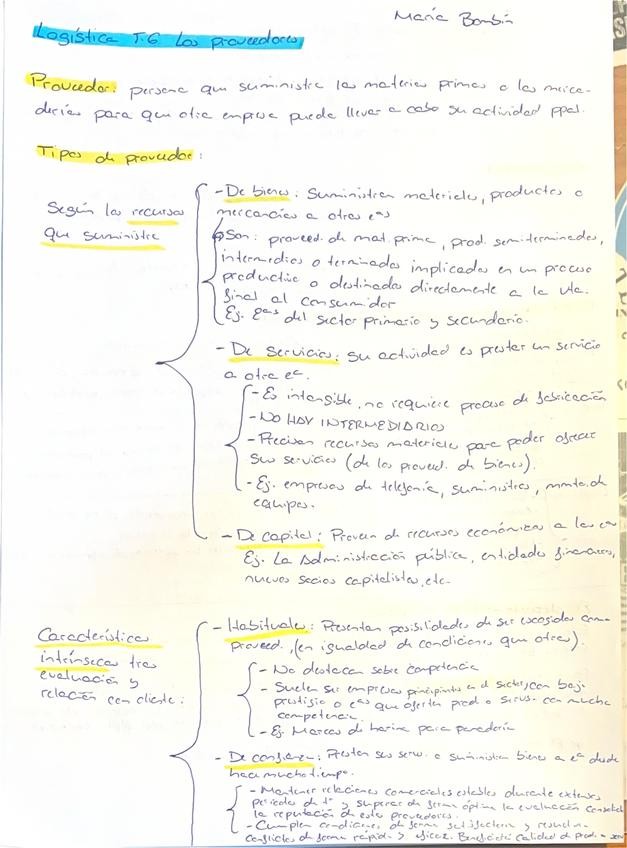 María Bombín
Logística T.6 Los proveedores
Proveedor: persona que suministra las materias primas o las merca-
derías para que otra empresa pueda llevar a cabo su actividad ppal.
Tipos de proveedor:
Según los recursos
que suministra
- De bienes: Suministran materiales, productos o
mercancías a otras eas
Son: proveed. de mat. prima, prod. semiterminados,
intermedios o terminados implicados en un proceso
productivo o destinados directamente a la vta.
final al consumidor
Ej. Eas del sector primario y secundario.
- De servicios: Su actividad es prestar un servicio
a otra ea.
- Es intangible, no requiere proceso de fabricación
- NO HAY INTERMEDIARIOS
- Precisan recursos materiales para poder ofrecer
sus servicios (de los proveed. de bienes).
- Ej. empresas de telefonía, suministros, mmto. de
equipos.
- De capital: Proveen de recursos económicos a las eas
Ej. La Administración pública, entidades financieras,
nuevos socios capitalistas, etc.
Características
intrínsecas tras
evaluación y
relación con cliente:
- Habituales: Presentan posibilidades de ser escogidos como
proveed., (en igualdad de condiciones que otros).
- No destacan sobre competencia
- Suelen ser empresas principiantes en el sector, con bajo
prestigio o eas que oferten prod. o servs. con mucha
competencia.
- Ej. Marcas de harina para panadería
- De confianza: Prestan sus serv. o suministran bienes a ea desde
hace mucho tiempo.
- Mantener relaciones comerciales estables durante extensos
periodos de tº y superar de forma óptima la evaluación
la reputación de estos proveedores.
- Cumplen condiciones de forma satisfactoria y resuelven
conflictos de forma rápida y eficaz. Calidad de prod. o serv